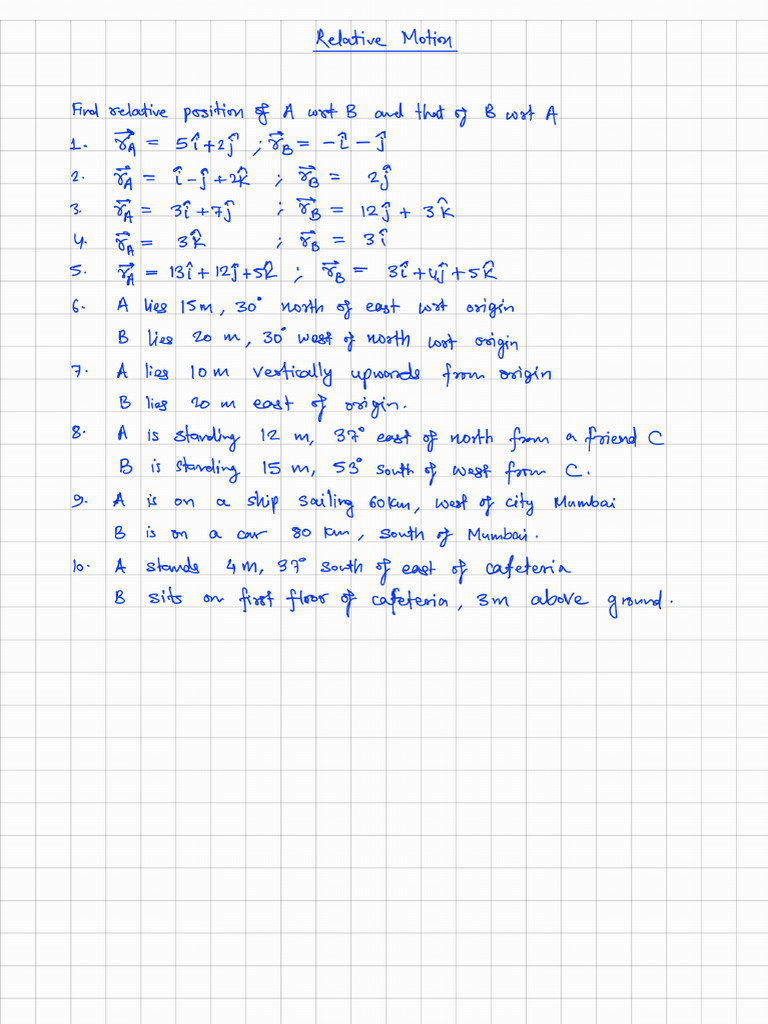 Relative Motion
Find relative position of A wrt B and that of B wrt A
1. r⃗_A = 5î + 2ĵ ; r⃗_B = -î - ĵ
2. r⃗_A = î - ĵ + 2k̂ ; r⃗_B = 2ĵ
3. r⃗_A = 3î + 7ĵ ; r⃗_B = 12ĵ + 3k̂
4. r⃗_A = 3k̂ ; r⃗_B = 3î
5. r⃗_A = 13î + 12ĵ + 5k̂ ; r⃗_B = 3î + 4ĵ + 5k̂
6. A lies 15m, 30° north of east wrt origin
B lies 20 m, 30° west of north wrt origin
7. A lies 10m vertically upwards from origin
B lies 20 m east of origin.
8. A is standing 12 m, 37° east of north from a friend C
B is standing 15 m, 53° south of west from C.
9. A is on a ship sailing 60km, west of city Mumbai
B is on a car 80 km, south of Mumbai.
10. A stands 4m, 37° south of east of cafeteria
B sits on first floor of cafeteria, 3m above ground.